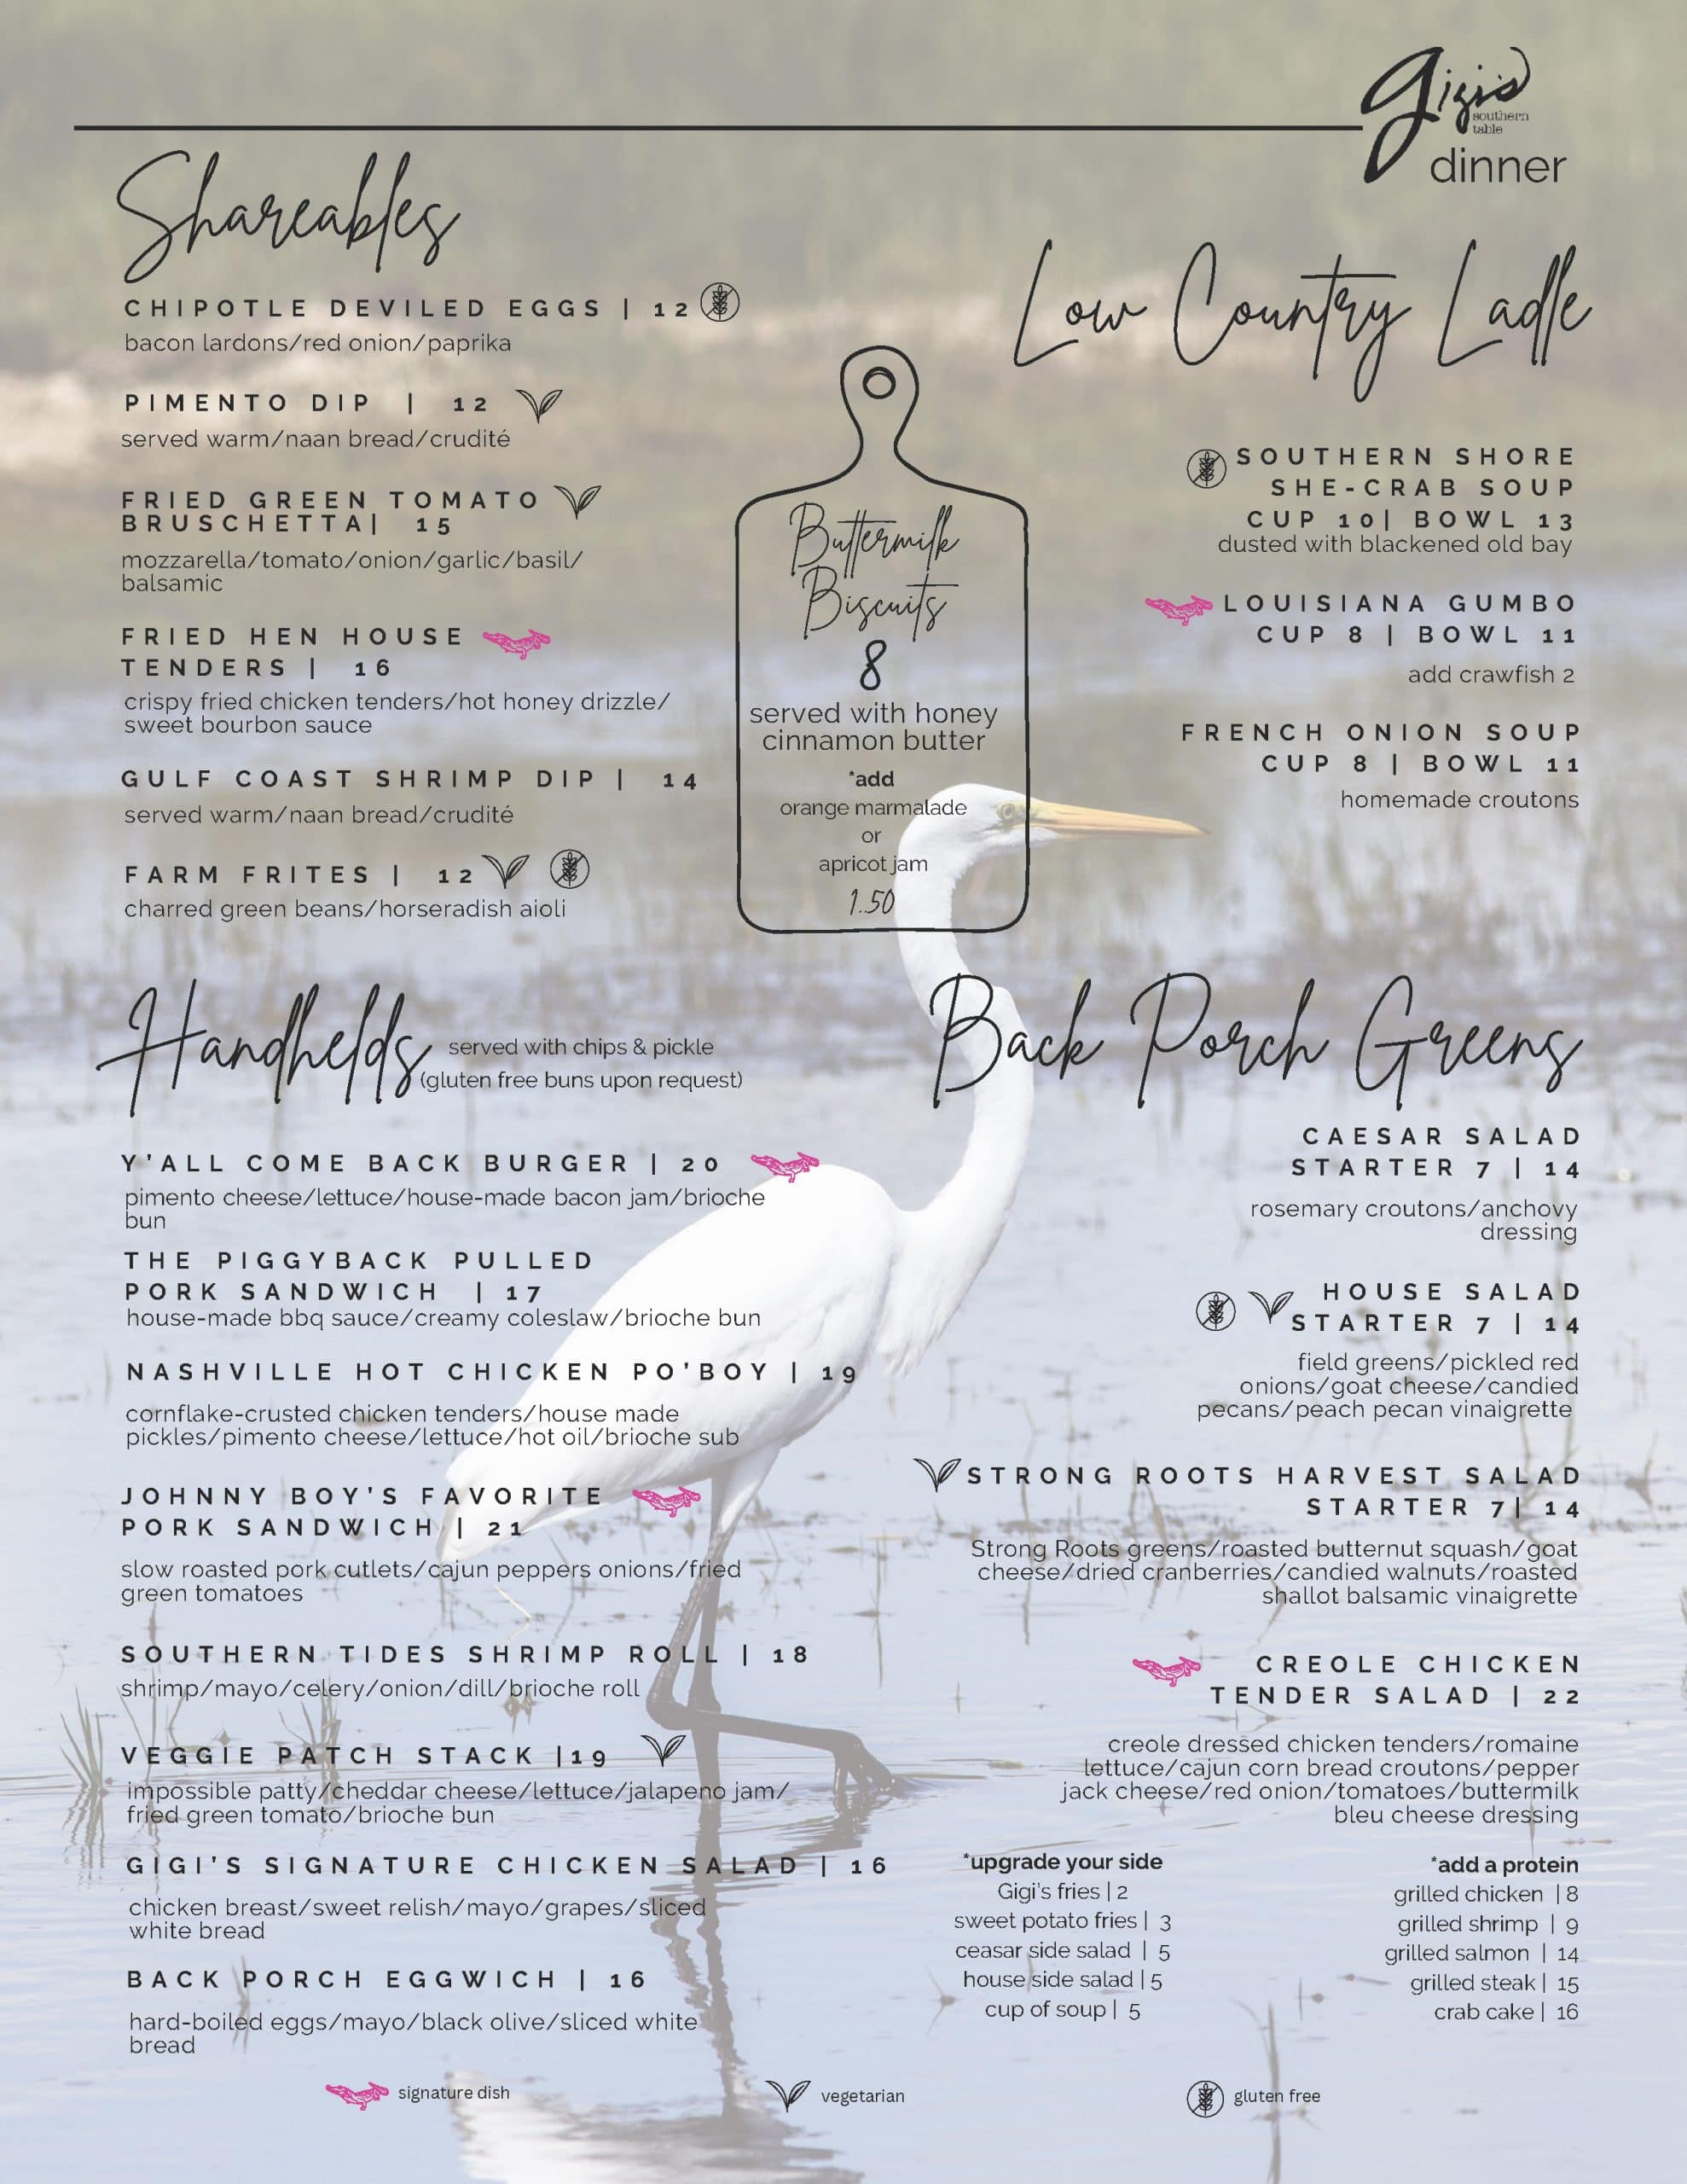 gigi's
southern
table
dinner
Shareables
CHIPOTLE DEVILED EGGS | 12
bacon lardons/red onion/paprika
PIMENTO DIP | 12
served warm/naan bread/crudité
FRIED GREEN TOMATO
BRUSCHETTA| 15
mozzarella/tomato/onion/garlic/basil/
balsamic
FRIED HEN HOUSE
TENDERS | 16
crispy fried chicken tenders/hot honey drizzle/
sweet bourbon sauce
GULF COAST SHRIMP DIP | 14
served warm/naan bread/crudité
FARM FRITES | 12
charred green beans/horseradish aioli
Buttermilk
Biscuits
8
served with honey
cinnamon butter
*add
orange marmalade
or
apricot jam
1.50
Low Country Ladle
SOUTHERN SHORE
SHE-CRAB SOUP
CUP 10| BOWL 13
dusted with blackened old bay
LOUISIANA GUMBO
CUP 8 | BOWL 11
add crawfish 2
FRENCH ONION SOUP
CUP 8 | BOWL 11
homemade croutons
Handhelds
served with chips & pickle
(gluten free buns upon request)
Y'ALL COME BACK BURGER | 20
pimento cheese/lettuce/house-made bacon jam/brioche
bun
THE PIGGYBACK PULLED
PORK SANDWICH | 17
house-made bbq sauce/creamy coleslaw/brioche bun
NASHVILLE HOT CHICKEN PO'BOY | 19
cornflake-crusted chicken tenders/house made
pickles/pimento cheese/lettuce/hot oil/brioche sub
JOHNNY BOY'S FAVORITE
PORK SANDWICH | 21
slow roasted pork cutlets/cajun peppers onions/fried
green tomatoes
SOUTHERN TIDES SHRIMP ROLL | 18
shrimp/mayo/celery/onion/dill/brioche roll
VEGGIE PATCH STACK |19
impossible patty/cheddar cheese/lettuce/jalapeno jam/
fried green tomato/brioche bun
GIGI'S SIGNATURE CHICKEN SALAD | 16
chicken breast/sweet relish/mayo/grapes/sliced
white bread
BACK PORCH EGGWICH | 16
hard-boiled eggs/mayo/black olive/sliced white
bread
Back Porch Greens
CAESAR SALAD
STARTER 7 | 14
rosemary croutons/anchovy
dressing
HOUSE SALAD
STARTER 7 | 14
field greens/pickled red
onions/goat cheese/candied
pecans/peach pecan vinaigrette
STRONG ROOTS HARVEST SALAD
STARTER 7| 14
Strong Roots greens/roasted butternut squash/goat
cheese/dried cranberries/candied walnuts/roasted
shallot balsamic vinaigrette
CREOLE CHICKEN
TENDER SALAD | 22
creole dressed chicken tenders/romaine
lettuce/cajun corn bread croutons/pepper
jack cheese/red onion/tomatoes/buttermilk
bleu cheese dressing
*upgrade your side
Gigi's fries | 2
sweet potato fries | 3
ceasar side salad | 5
house side salad | 5
cup of soup | 5
*add a protein
grilled chicken | 8
grilled shrimp | 9
grilled salmon | 14
grilled steak | 15
crab cake | 16
signature dish
vegetarian
gluten free